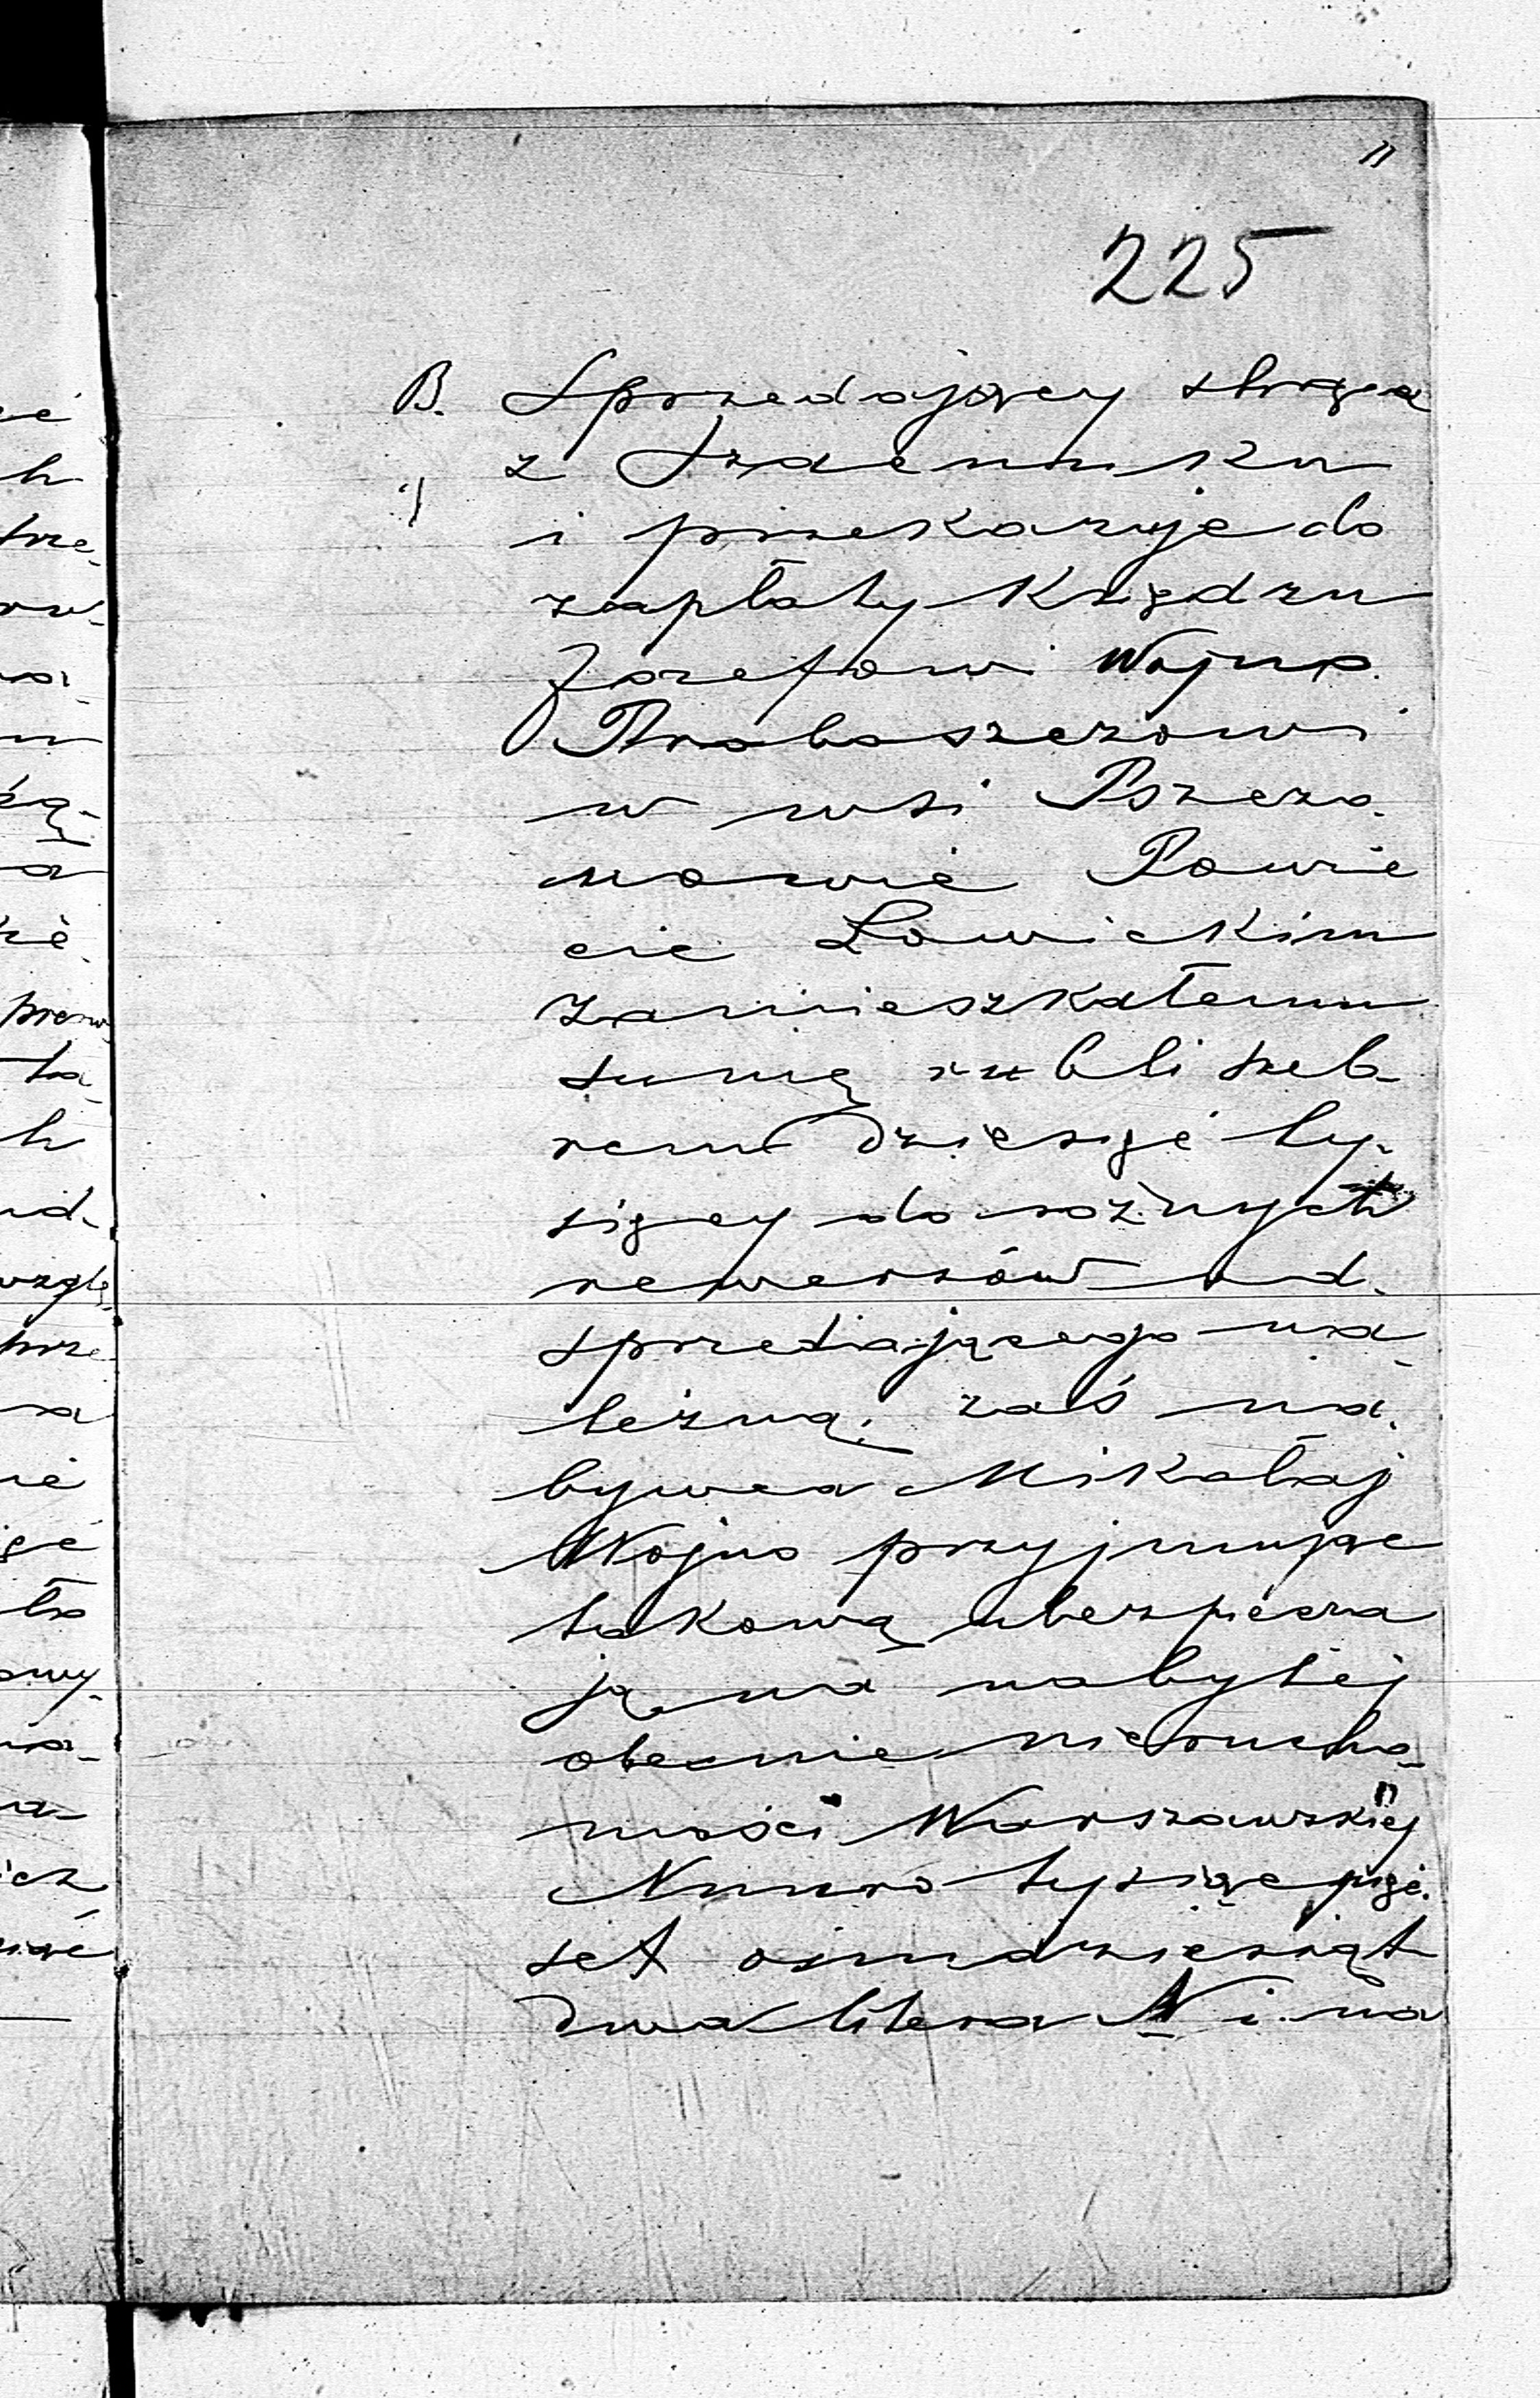 225
B. Sprzedający strąca
z Szacunku
i przekazuje do
zapłaty Księdzu
Józefowi Wojno
Proboszczowi
w wsi Pszczo-
nowie Powie
cie Łowickim
zamieszkałemu
sumę rubli sreb-
rem dziesięć ty-
sięcy do różnych
rewersów od
sprzedającego na
leżną; zaś na-
bywca Mikołaj
Wojno przyjmując
takową ubezpiecza
ją na nabytej
obecnie nierucho-
mości Warszawskiej
Numro tysiąc pięć-
set ośmdziesiąt
dwa litera N i na